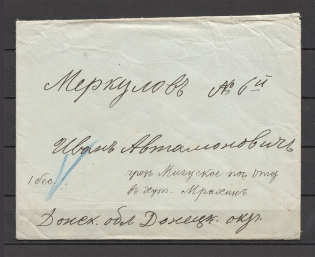 Меркуловъ № 6й
Иванъ Автамоновичъ
1 бес.
чрез Мигул­ское поч. отд
въ хут. Мрыхинъ
Донск. обл Донецк. окр.